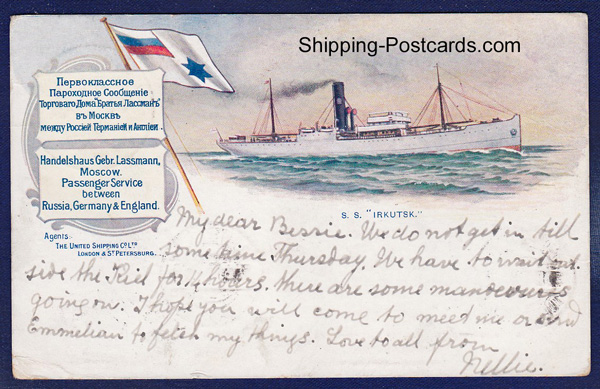 Shipping-Postcards.com
Первоклассное
Пароходное Сообщеніе
Торговаго Дома „Братья Лассманъ“
въ Москвѣ
между Россіей Германіей и Англіей.
Handelshaus Gebr. Lassmann,
Moscow.
Passenger Service
between
Russia, Germany & England.
Agents:
THE UNITED SHIPPING Co LTD
LONDON & ST PETERSBURG.
S. S. "IRKUTSK."
My dear Bessie. We do not get in till
some time Thursday. We have to wait out
side the Kiel for 14 hours, there are some manoeuvres
going on. I hope you will come to meet me or send
Emmelian to fetch my things. Love to all from
Nellie.